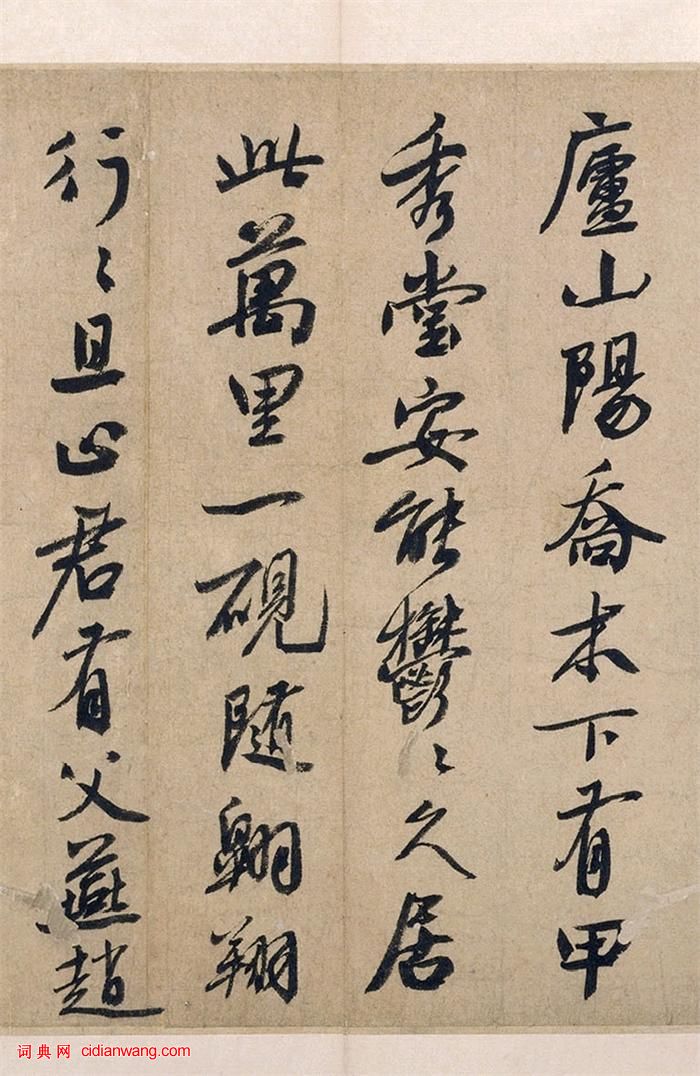 廬山陽喬木下有甲
秀堂安能鬱々久居
此萬里一硯隨翱翔
行々且止君有父燕趙
词典网 cidianwang.com